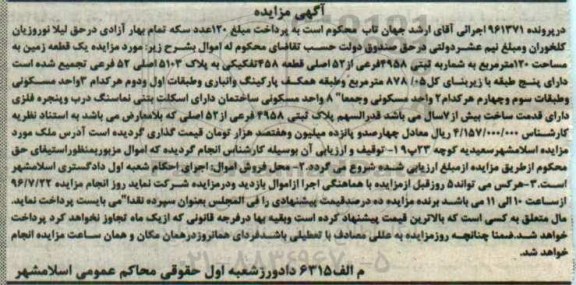 آگهی مزایده
درپرونده ۹۶۱۳۷۱ اجرائی آقای ارشد جهان تاب محکوم است به پرداخت مبلغ ۱۲۰عدد سکه تمام بهار آزادی درحق لیلا نوروزیان
کلخوران ومبلغ نیم عشردولتی درحق صندوق دولت حسب تقاضای محکوم له اموال بشرح زیر: مورد مزایده یک قطعه زمین به
مساحت ۱۲۰مترمربع به شماربه ثبتی ۴۹۵۸فرعی از۵۲ اصلی قطعه ۴۵۸تفکیکی به پلاک ۵۱۰۳اصلی ۵۲ فرعی تجمیع شده است
دارای پنج طبقه با زیربنای کل۸۷۸/۰۵ مترمربع وطبقه همکف پارکینگ وانباری وطبقات اول ودوم هرکدام ۳واحد مسکونی
وطبقات سوم وچهارم هرکدام۲ واحد مسکونی وجمعا" ۸ واحد مسکونی ساختمان دارای اسکلت بتنی نماسنگ درب وپنجره فلزی
دارای قدمت ساخت بیش از۷سال می باشد قدرالسهم پلاک ثبتی ۴۹۵۸ فرعی از۵۲ اصلی که بلامعارض می باشد به استناد نظریه
کارشناس ۴/۱۵۷/۰۰۰/۰۰۰ ریال معادل چهارصدو پانزده میلیون وهفتصد هزار تومان قیمت گذاری گردیده است آدرس ملک مورد
مزایده اسلامشهرسعیدیه کوچه ۲۳پ۱۹- توقیف و ارزیابی آن بوسیله کارشناس انجام گردیده که اموال مزبوربمنظوراستیفای حق
محکوم ازطریق مزایده ازمبلغ ارزیابی شده شروع می گردد.۲-محل فروش اموال: اجرای احکام شعبه اول دادگستری اسلامشهر
است.۳-هرکس می تواند۵ روزقبل ازمزایده با هماهنگی اجرا ازاموال بازدید ودرمزایده شرکت نماید روز انجام مزایده ۹۶/۷/۲۲
ازساعت ۱۰ الی ۱۱ می باشد برنده مزایده ده درصدقیمت پیشنهادی را فی المجلس بعنوان سپرده نقدا"می بایست پرداخت نماید.
مال متعلق به کسی است که بالاترین قیمت پیشنهاد کرده است وبقیه بها درفرجه قانونی که ازیک ماه تجاوز نخواهد کرد پرداخت
خواهد شد.ضمنا چنانچه روزمزایده به عللی مصادف با تعطیلی باشدفردای همانروزدرهمان مکان و همان ساعت مزایده انجام
خواهد شد.
م الف۶۳۱۵ دادورزشعبه اول حقوقی محاکم عمومی اسلامشهر